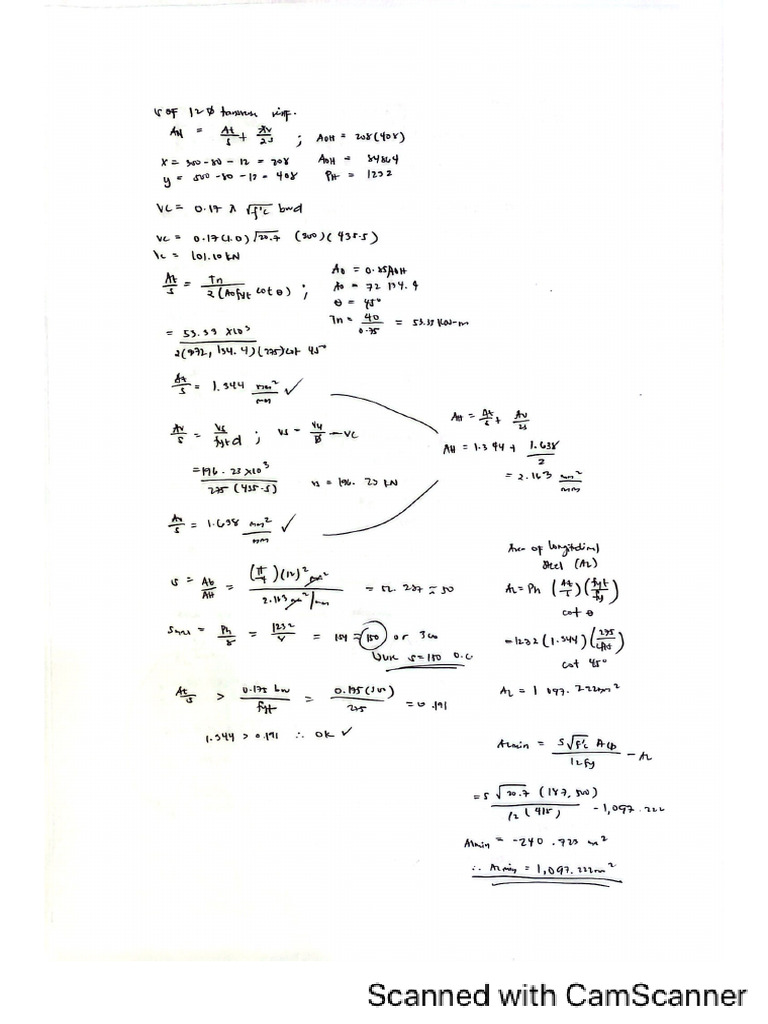 s OF 12 Ø transverse reinf.
AH = At/s + Av/2s ; AOH = 208(408)
x = 300-80-12 = 208 AOH = 84864
y = 500-80-12 = 408 PH = 1232
VC = 0.17 λ √f'c bwd
VC = 0.17(1.0)√20.7 (300)(435.5)
Vc = 101.10 kN
At/s = Tn / 2(Aofyt cot θ) ;
Ao = 0.85AOH
Ao = 72 134.4
θ = 45°
Tn = 40/0.75 = 53.33 kN-m
= 53.33 x10³ / 2(72,134.4)(275)cot 45°
At/s = 1.344 mm²/mm ✓
Av/s = Vs/fytd ; Vs = Vu/Ø - VC
= 196.23 x10³ / 275(435.5) Vs = 196.23 kN
Av/s = 1.638 mm²/mm ✓
AH = At/s + Av/2s
AH = 1.344 + 1.638/2
= 2.163 mm²/mm
s = Ab/AH = (π/4)(12)² mm² / 2.163 mm²/mm = 52.287 ≈ 50
Smax = Ph/8 = 1232/8 = 154 ≈ 150 or 300
s=150 O.C
At/s > 0.175 bw/fyt = 0.175(300)/275 = 0.191
1.344 > 0.191 ∴ OK ✓
Area of longitudinal
steel (AL)
AL = Ph (At/s)(fyt/fy)
cot θ
= 1232(1.344)(275/415)
cot 45°
AL = 1 097.222mm²
ALmin = 5√f'c Acp / 12fy - AL
= 5 √20.7 (187,500) / 12(415) - 1,097.222
ALmin = -240.723 m²
∴ ALmin = 1,097.222mm²
Scanned with CamScanner